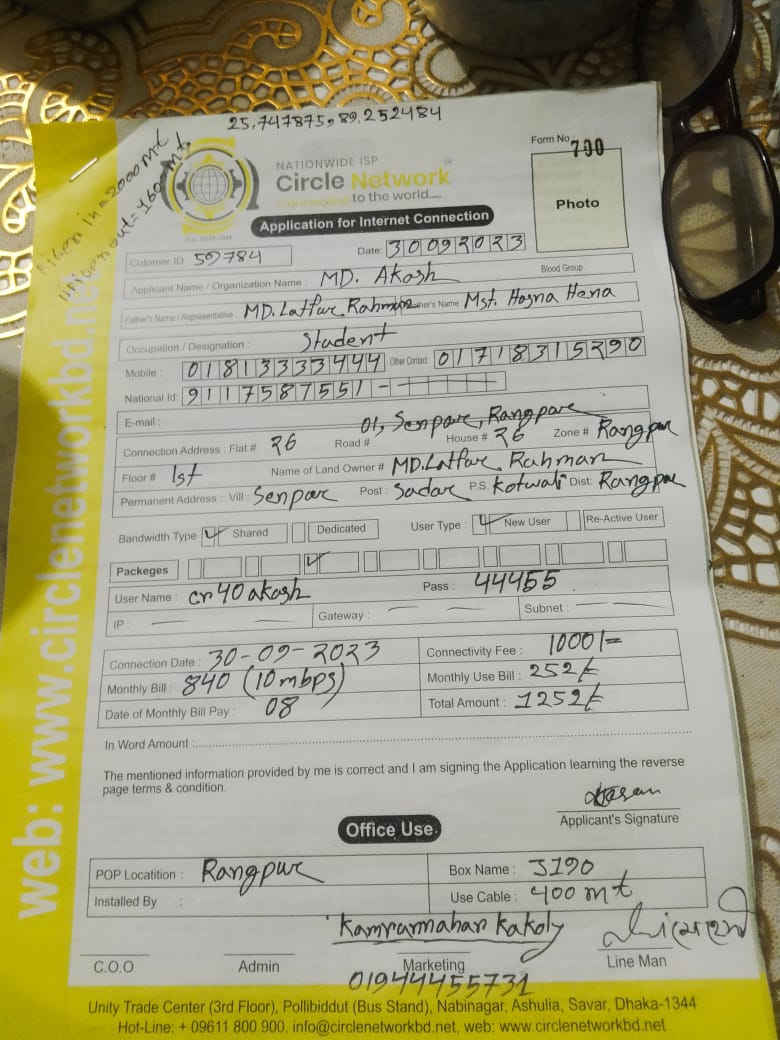 25.747875, 89.252484
Fiber in = 2000 mt
NATIONWIDE ISP
Circle Network
Connected to the world....
Application for Internet Connection
Form No : 700
Photo
Cutomer ID 59784
Date: 30092023
Applicant Name / Organization Name : MD. Akash Blood Group
Father's Name / Representative : MD. Latfur Rahman Mother's Name Mst. Hasna Hena
Occupation / Designation : Student
Mobile : 01813333444 Other Contact 01718315290
National Id: 9117587551
E-mail :
01, Senpara, Rangpur
Connection Address : Flat # 26 Road # House # 26 Zone # Rangpur
Floor # 1st Name of Land Owner # MD. Latfur Rahman
Permanent Address : Vill : Senpar Post : Sadar P.S. Kotwali Dist: Rangpur
Bandwidth Type ✓ Shared Dedicated User Type : ✓ New User Re-Active User
Packeges ✓
User Name : cn40akash Pass : 44455
IP : — — Gateway : — — Subnet : —
Connection Date : 30-09-2023 Connectivity Fee : 1000/=
Monthly Bill : 840 (10mbps) Monthly Use Bill : 252/=
Date of Monthly Bill Pay : 08 Total Amount : 1252/=
In Word Amount :
The mentioned information provided by me is correct and I am signing the Application learning the reverse
page terms & condition.
Hasan
Applicant's Signature
Office Use
POP Locatition : Rangpur Box Name : J190
Installed By : Use Cable : 400 mt
Kamrurnahar Kakoly
C.O.O Admin Marketing Line Man
01944455731
Unity Trade Center (3rd Floor), Pollibiddut (Bus Stand), Nabinagar, Ashulia, Savar, Dhaka-1344
Hot-Line: + 09611 800 900, info@circlenetworkbd.net, web: www.circlenetworkbd.net
web: www.circlenetworkbd.net